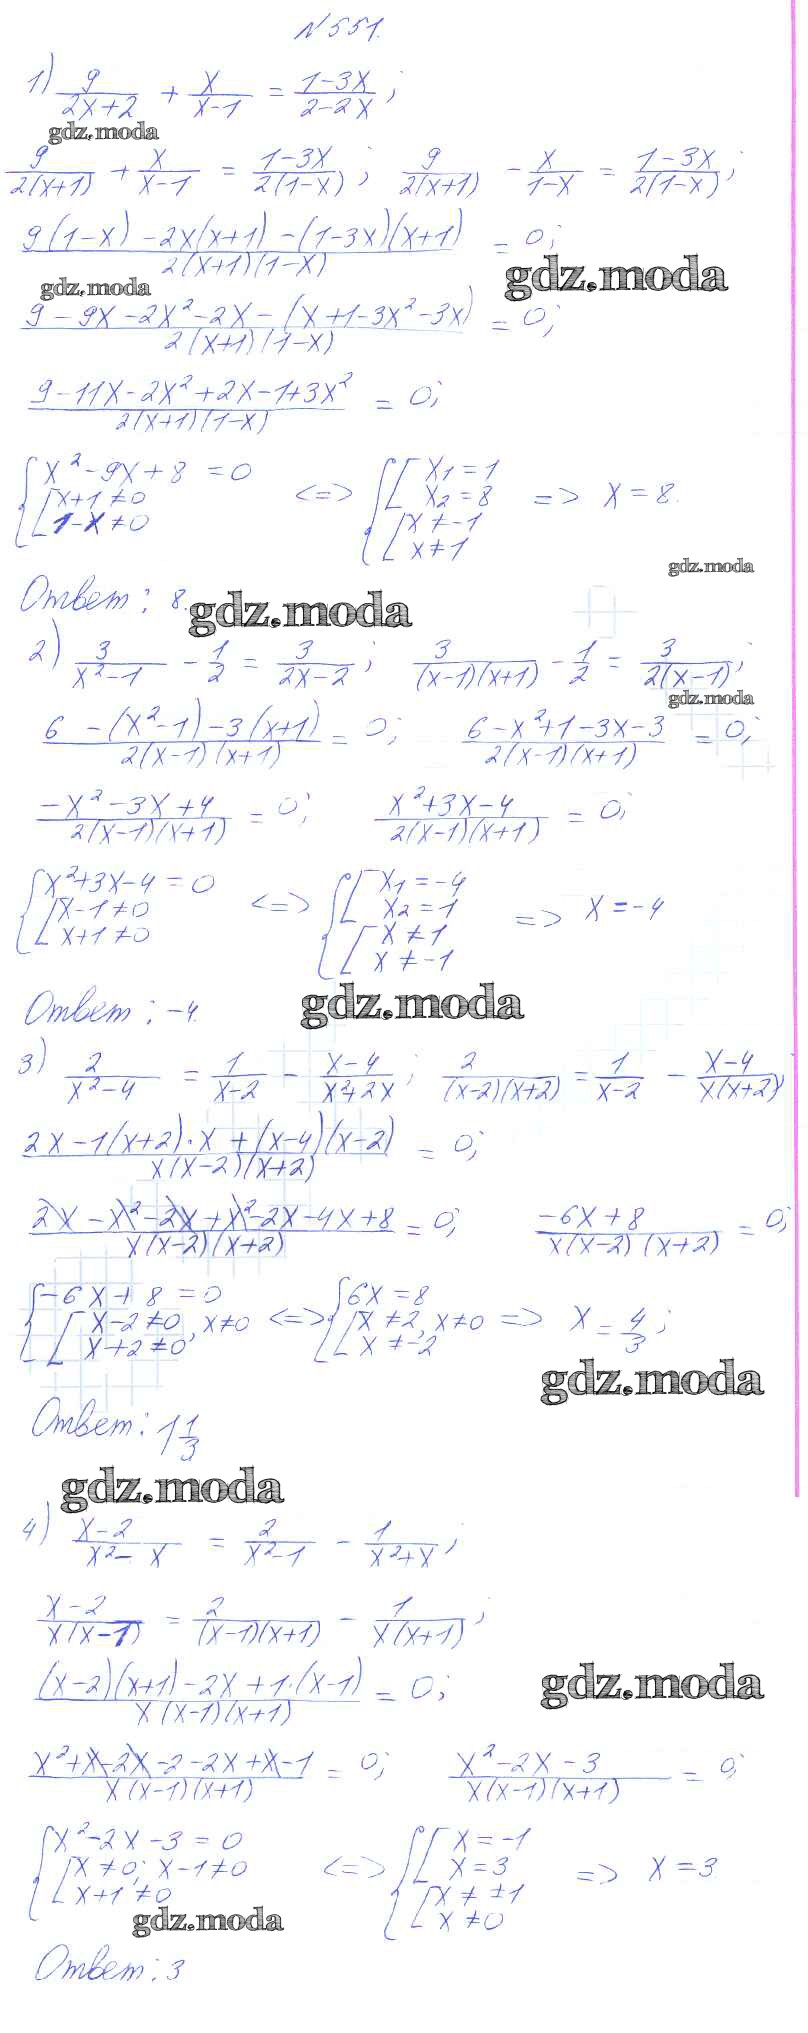 №551.
1) 9/(2x+2) + x/(x-1) = (1-3x)/(2-2x);
gdz.moda
9/(2(x+1)) + x/(x-1) = (1-3x)/(2(1-x)); 9/(2(x+1)) - x/(1-x) = (1-3x)/(2(1-x));
(9(1-x) - 2x(x+1) - (1-3x)(x+1))/(2(x+1)(1-x)) = 0;
gdz.moda
gdz.moda
(9 - 9x - 2x² - 2x - (x+1-3x²-3x))/(2(x+1)(1-x)) = 0;
(9 - 11x - 2x² + 2x - 1 + 3x²)/(2(x+1)(1-x)) = 0;
{ x² - 9x + 8 = 0 [ x+1 ≠ 0 1-x ≠ 0 <=> { [ x₁ = 1 x₂ = 8 [ x ≠ -1 x ≠ 1 => x = 8.
gdz.moda
Ответ: 8.
gdz.moda
2) 3/(x²-1) - 1/2 = 3/(2x-2); 3/((x-1)(x+1)) - 1/2 = 3/(2(x-1));
gdz.moda
(6 - (x²-1) - 3(x+1))/(2(x-1)(x+1)) = 0; (6 - x² + 1 - 3x - 3)/(2(x-1)(x+1)) = 0;
(-x² - 3x + 4)/(2(x-1)(x+1)) = 0; (x² + 3x - 4)/(2(x-1)(x+1)) = 0;
{ x² + 3x - 4 = 0 [ x-1 ≠ 0 x+1 ≠ 0 <=> { [ x₁ = -4 x₂ = 1 [ x ≠ 1 x ≠ -1 => x = -4
Ответ: -4.
gdz.moda
3) 2/(x²-4) = 1/(x-2) - (x-4)/(x²+2x); 2/((x-2)(x+2)) = 1/(x-2) - (x-4)/(x(x+2))
(2x - 1(x+2)·x + (x-4)(x-2))/(x(x-2)(x+2)) = 0;
(2x - x² - 2x + x² - 2x - 4x + 8)/(x(x-2)(x+2)) = 0; (-6x + 8)/(x(x-2)(x+2)) = 0;
{ -6x + 8 = 0 [ x-2 ≠ 0 x+2 ≠ 0, x ≠ 0 <=> { 6x = 8 [ x ≠ 2 x ≠ -2, x ≠ 0 => x = 4/3;
gdz.moda
Ответ: 1 1/3
gdz.moda
4) (x-2)/(x²-x) = 2/(x²-1) - 1/(x²+x);
(x-2)/(x(x-1)) = 2/((x-1)(x+1)) - 1/(x(x+1));
((x-2)(x+1) - 2x + 1·(x-1))/(x(x-1)(x+1)) = 0;
gdz.moda
(x² + x - 2x - 2 - 2x + x - 1)/(x(x-1)(x+1)) = 0; (x² - 2x - 3)/(x(x-1)(x+1)) = 0;
{ x² - 2x - 3 = 0 [ x ≠ 0; x-1 ≠ 0 x+1 ≠ 0 <=> { [ x = -1 x = 3 [ x ≠ ±1 x ≠ 0 => x = 3
gdz.moda
Ответ: 3